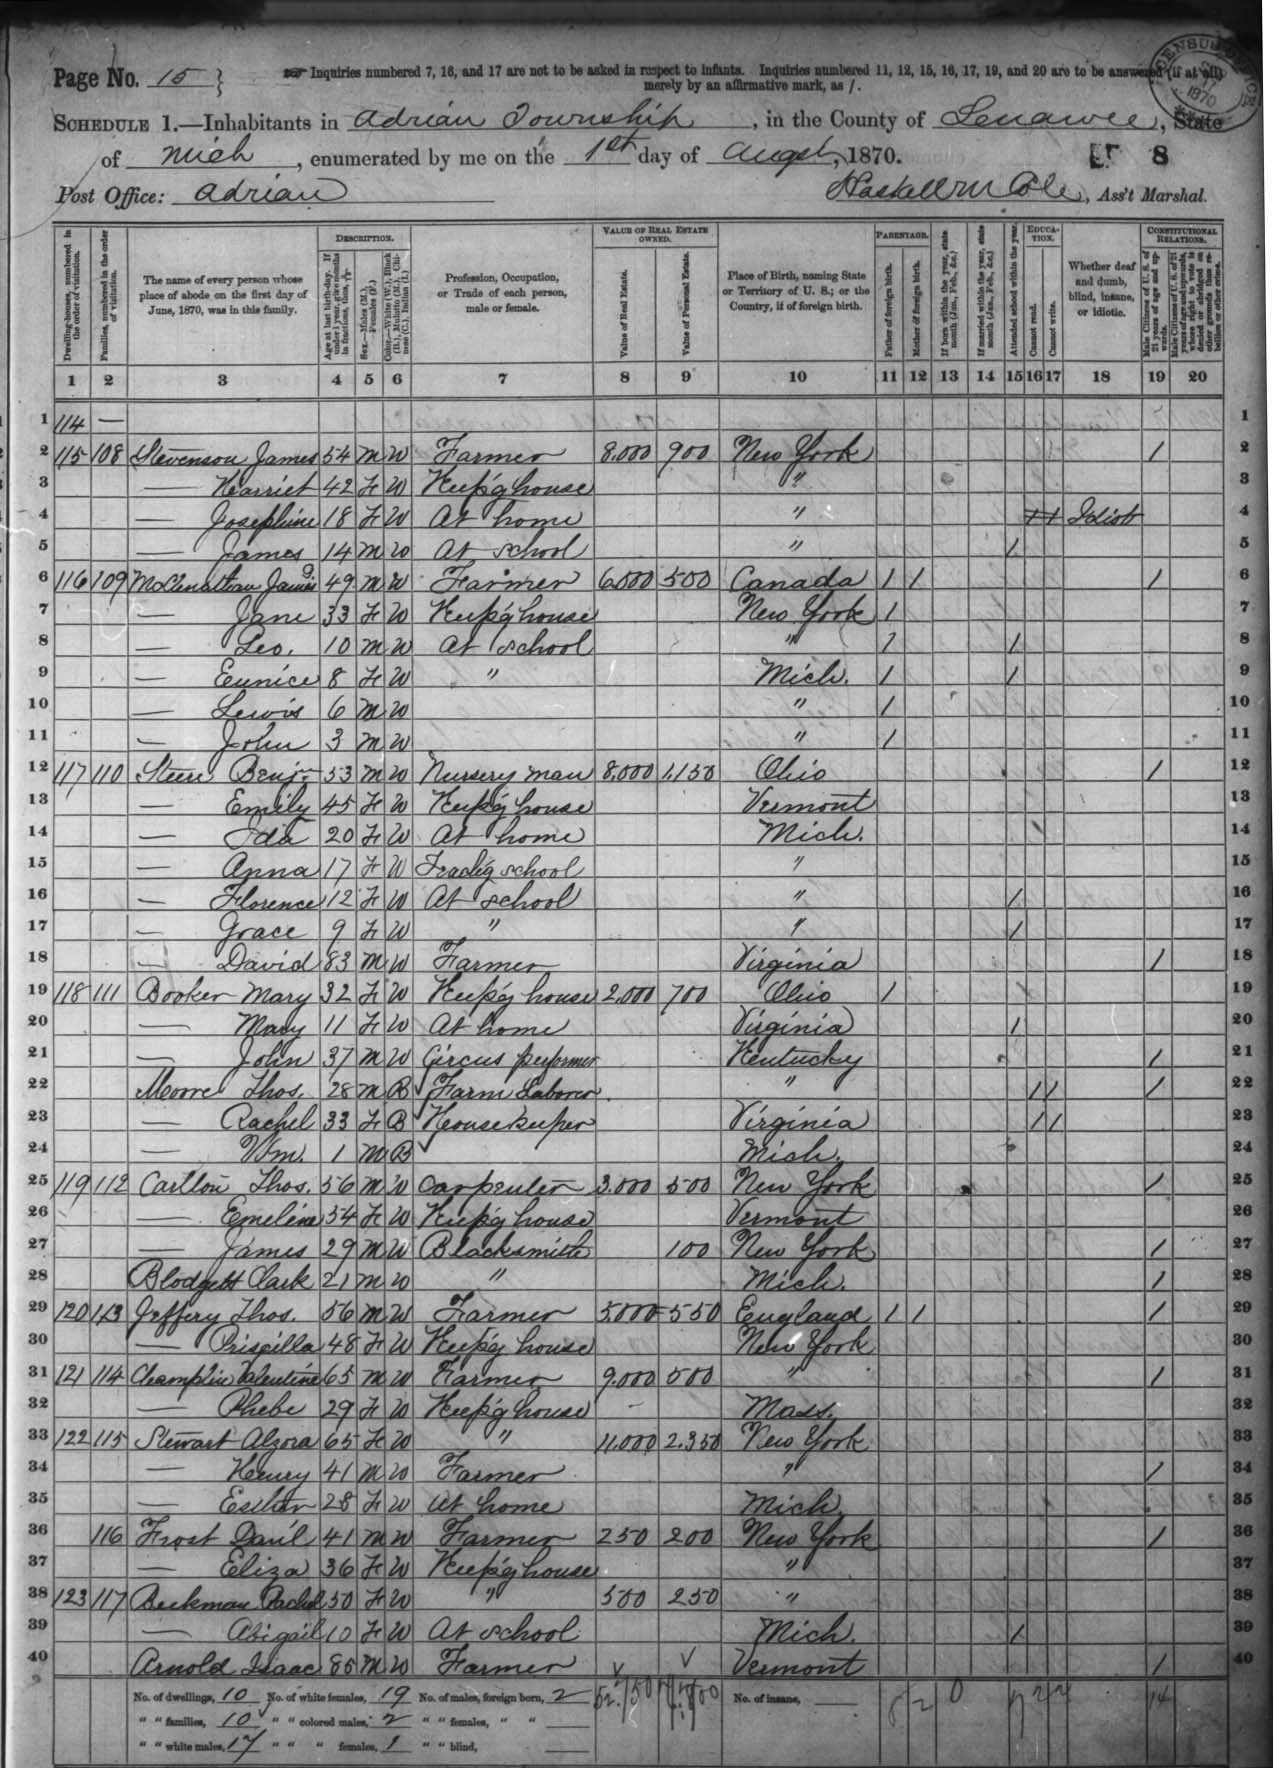 Page No. 15 } Inquiries numbered 7, 16, and 17 are not to be asked in respect to infants. Inquiries numbered 11, 12, 15, 16, 17, 19, and 20 are to be answered (if at all)
merely by an affirmative mark, as /.
CENSUS OFFICE 17 1870
SCHEDULE 1.—Inhabitants in Adrian Township, in the County of Lenawee, State
of Mich, enumerated by me on the 1st day of Augst, 1870. 8
Post Office: Adrian Haskell M Cole, Ass't Marshal.
Dwelling-houses, numbered in the order of visitation.
Families, numbered in the order of visitation.
The name of every person whose place of abode on the first day of June, 1870, was in this family.
DESCRIPTION.
Age at last birth-day. If under 1 year, give months in fractions, thus,
Sex.—Males (M.), Females (F.)
Color.—White (W.), Black (B.), Mulatto (M.), Chinese (C.), Indian (I.)
Profession, Occupation, or Trade of each person, male or female.
VALUE OF REAL ESTATE OWNED.
Value of Real Estate.
Value of Personal Estate.
Place of Birth, naming State or Territory of U. S.; or the Country, if of foreign birth.
PARENTAGE.
Father of foreign birth.
Mother of foreign birth.
If born within the year, state month (Jan., Feb., &c.)
If married within the year, state month (Jan., Feb., &c.)
EDUCATION.
Attended school within the year.
Cannot read.
Cannot write.
Whether deaf and dumb, blind, insane, or idiotic.
CONSTITUTIONAL RELATIONS.
Male Citizens of U. S. of 21 years of age and upwards.
Male Citizens of U. S. of 21 years of age and upwards, whose right to vote is denied or abridged on other grounds than rebellion or other crime.
1 2 3 4 5 6 7 8 9 10 11 12 13 14 15 16 17 18 19 20
1 114 — 1
2 115 108 Stevenson James 54 M W Farmer 8,000 900 New York / 2
3 — Harriet 42 F W Keep'g house " 3
4 — Josephine 18 F W At home " / / Idiot 4
5 — James 14 M W At school " / 5
6 116 109 James 49 M W Farmer 6,000 500 Canada / / / 6
7 — Jane 33 F W Keep'g house New York / 7
8 — Leo. 10 M W At school " / / 8
9 — Eunice 8 F W " Mich. / / 9
10 — Lewis 6 M W " / 10
11 — John 3 M W " / 11
12 117 110 Steere Benj. 53 M W Nursery man 8,000 1,150 Ohio / 12
13 — Emily 45 F W Keep'g house Vermont 13
14 — Ida 20 F W At home Mich. 14
15 — Anna 17 F W Teach'g school " 15
16 — Florence 12 F W At school " / 16
17 — Grace 9 F W " " / 17
18 — David 83 M W Farmer Virginia / 18
19 118 111 Booker Mary 32 F W Keep'g house 2,000 700 Ohio / 19
20 — Mary 11 F W At home Virginia / 20
21 — John 37 M W Circus performer Kentucky / 21
22 Moore Thos. 28 M B Farm Laborer " / / / 22
23 — Rachel 33 F B Housekeeper Virginia / / 23
24 — Wm. 1 M B Mich. 24
25 119 112 Carlton Thos. 56 M W Carpenter 3,000 500 New York / 25
26 — Emeline 54 F W Keep'g house Vermont 26
27 — James 29 M W Blacksmith 100 New York / 27
28 Blodgett Clark 21 M W " Mich. / 28
29 120 113 Jeffery Thos. 56 M W Farmer 5,000 550 England / / / 29
30 — Priscilla 48 F W Keep'g house New York 30
31 121 114 Champlin Valentine 65 M W Farmer 9,000 500 " / 31
32 — Phebe 29 F W Keep'g house Mass. 32
33 122 115 Stewart Alzora 65 F W " 11,000 2,350 New York 33
34 — Henry 41 M W Farmer " / 34
35 — Esther 28 F W At home Mich. 35
36 116 Frost Dan'l 41 M W Farmer 250 200 New York / 36
37 — Eliza 36 F W Keep'g house " 37
38 123 117 Beekman Rachel 50 F W " 500 250 " 38
39 — Abigail 10 F W At school Mich. / 39
40 Arnold Isaac 85 M W Farmer Vermont / 40
No. of dwellings, 10 No. of white females, 19 No. of males, foreign born, 2 No. of insane, 8 2 0 14
" " families, 10 " " colored males, 2 " " females, " "
" " white males, 17 " " " females, 1 " " blind,